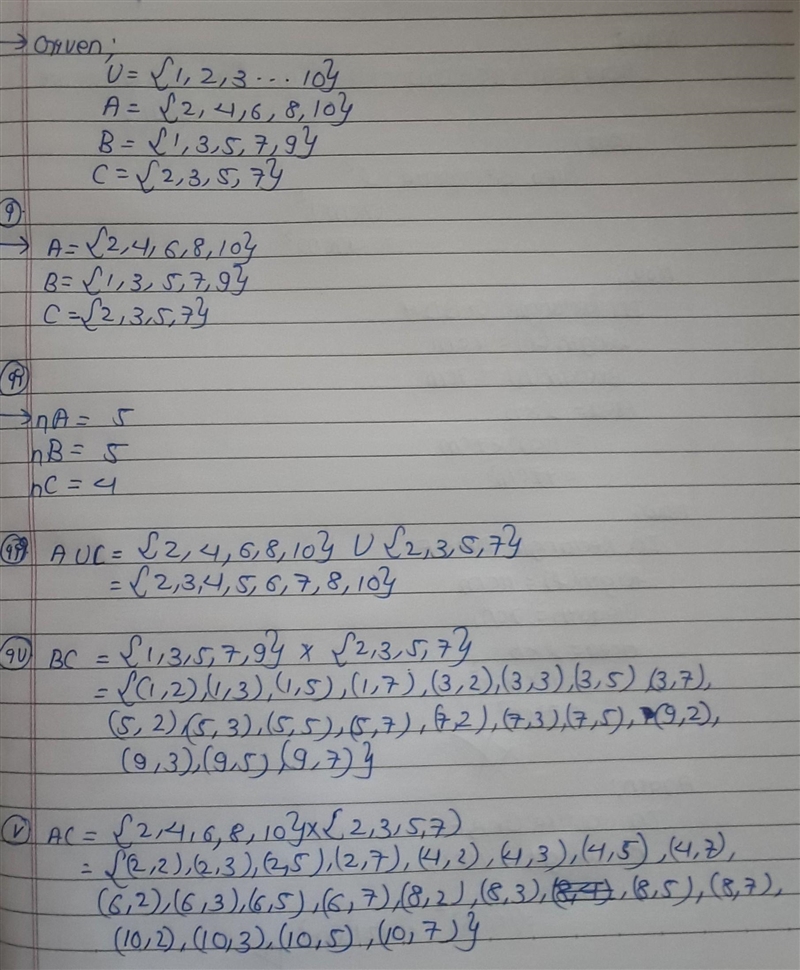 → Given;
U = {1, 2, 3 ... 10}
A = {2, 4, 6, 8, 10}
B = {1, 3, 5, 7, 9}
C = {2, 3, 5, 7}
(i)
→ A = {2, 4, 6, 8, 10}
B = {1, 3, 5, 7, 9}
C = {2, 3, 5, 7}
(ii)
→ nA = 5
nB = 5
nC = 4
(iii) A U C = {2, 4, 6, 8, 10} U {2, 3, 5, 7}
= {2, 3, 4, 5, 6, 7, 8, 10}
(iv) BC = {1, 3, 5, 7, 9} x {2, 3, 5, 7}
= {(1, 2), (1, 3), (1, 5), (1, 7), (3, 2), (3, 3), (3, 5) (3, 7),
(5, 2), (5, 3), (5, 5), (5, 7), (7, 2), (7, 3), (7, 5), (9, 2),
(9, 3), (9, 5), (9, 7)}
(v) AC = {2, 4, 6, 8, 10} x {2, 3, 5, 7)
= {(2, 2), (2, 3), (2, 5), (2, 7), (4, 2), (4, 3), (4, 5), (4, 7),
(6, 2), (6, 3), (6, 5), (6, 7), (8, 2), (8, 3), (8, 4), (8, 5), (8, 7),
(10, 2), (10, 3), (10, 5), (10, 7)}